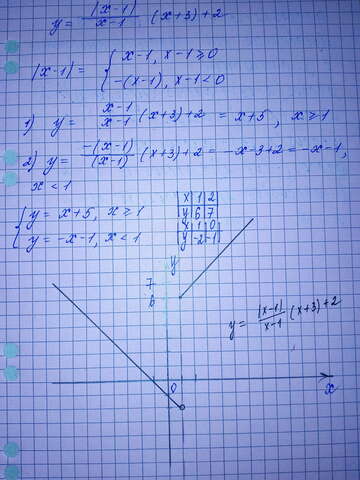 y = |x-1|/(x-1) (x+3)+2
|x-1| = { x-1, x-1≥0
-(x-1), x-1<0
1) y = (x-1)/(x-1) (x+3)+2 = x+5, x≥1
2) y = -(x-1)/(x-1) (x+3)+2 = -x-3+2 = -x-1,
x<1
{ y = x+5, x≥1
y = -x-1, x<1
x | 1 | 2
y | 6 | 7
x | 1 | 0
y | -2 | -1
y
7
6
y = |x-1|/(x-1) (x+3)+2
0
x